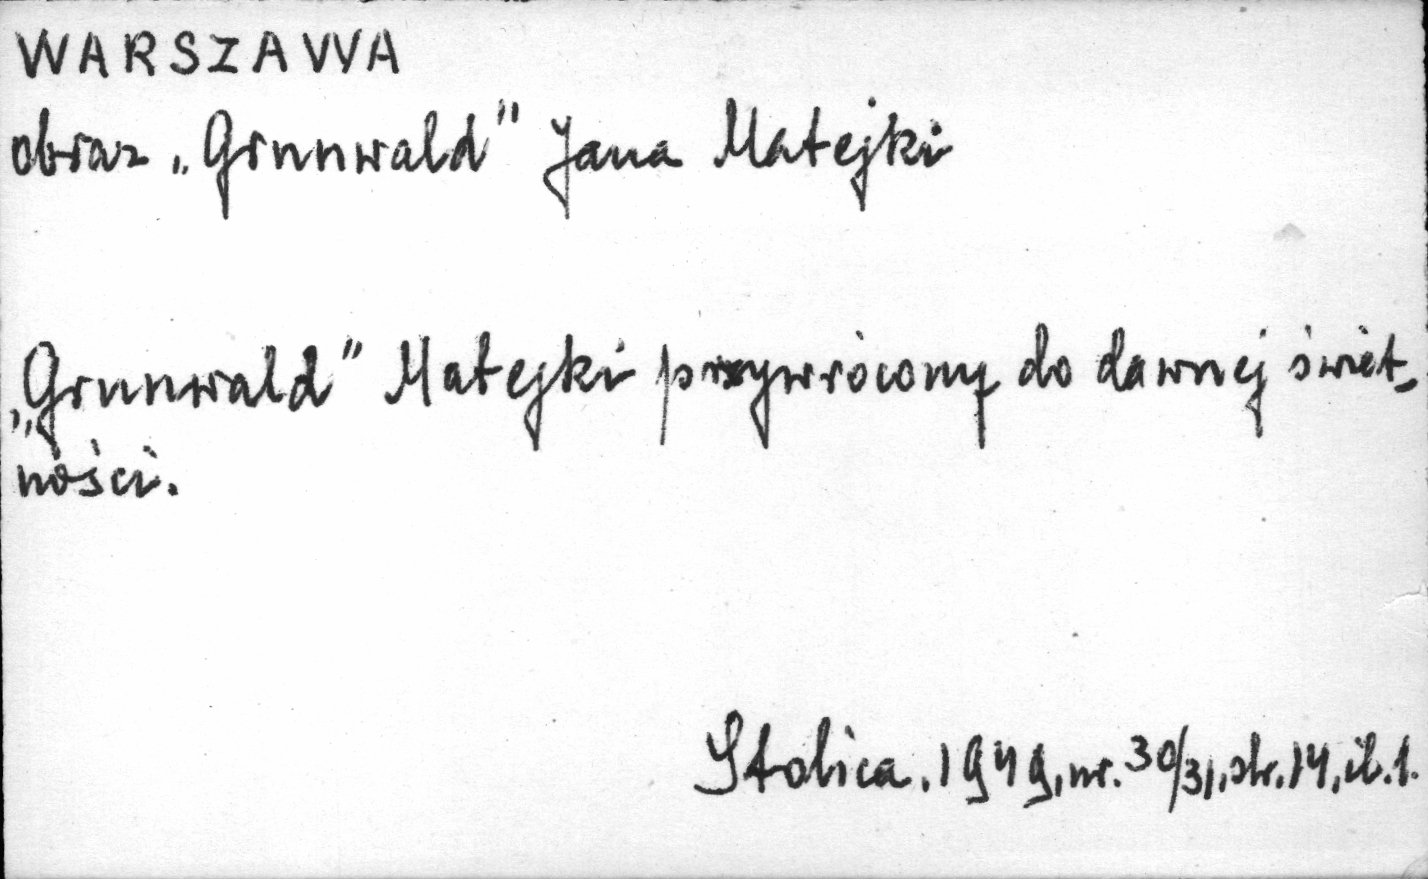 WARSZAWA
obraz „Grunwald" Jana Matejki
„Grunwald" Matejki przywrócony do dawnej świet-
ności.
Stolica. 1949, nr. 30/31, str. 14, il. 1.